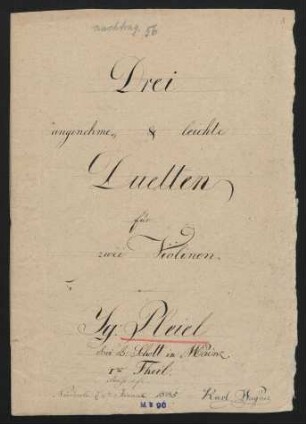 nachtrag. 56
Drei
angenehme & leichte
Duetten
für
zwei Violinen.
Ig. Pleiel
bei B. Schott in Mainz
1r Theil.
Karl Wagner